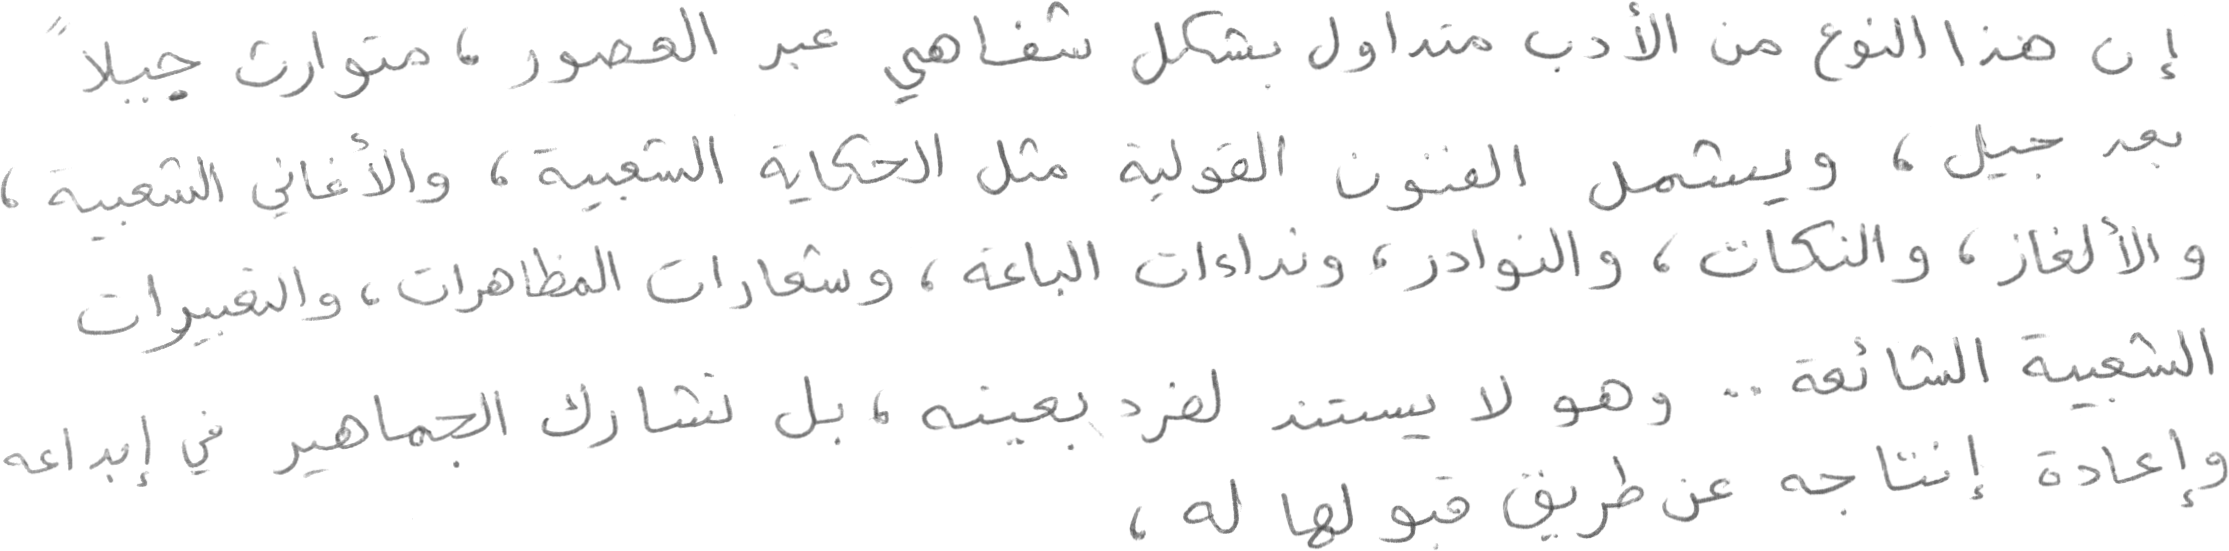 إن هذا النوع من الأدب متداول بشكل شفاهي عبر العصور ، متوارث جيلاً
بعد جيل ، ويشمل الفنون القولية مثل الحكاية الشعبية ، والأغاني الشعبية ،
والألغاز ، والنكات ، والنوادر ، ونداءات الباعة ، وشعارات المظاهرات ، والتعبيرات
الشعبية الشائعة .. وهو لا يستند لفرد بعينه ، بل تشارك الجماهير في إبداعه
وإعادة إنتاجه عن طريق قبولها له ،